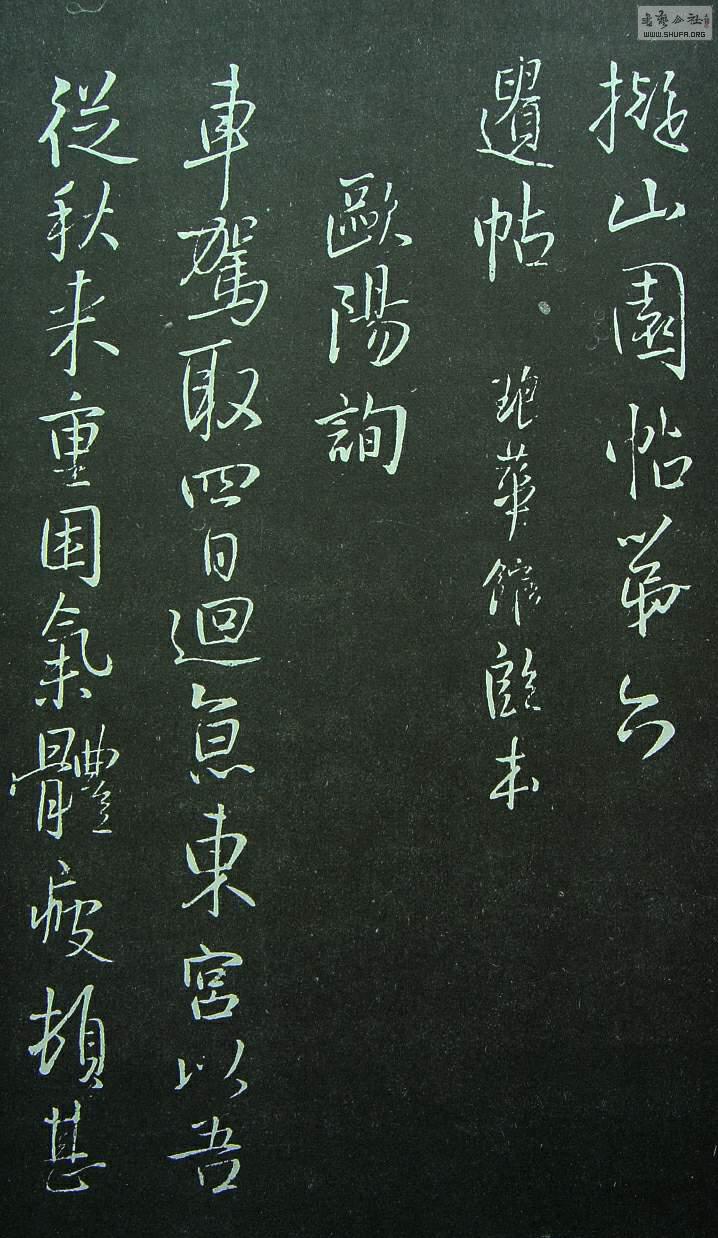 擬山園帖第六
遺帖 琅華館
歐陽詢
車駕取四日迴息東宮以吾
從秋来重困氣體疲頓甚
书艺公社
WWW.SHUFA.ORG